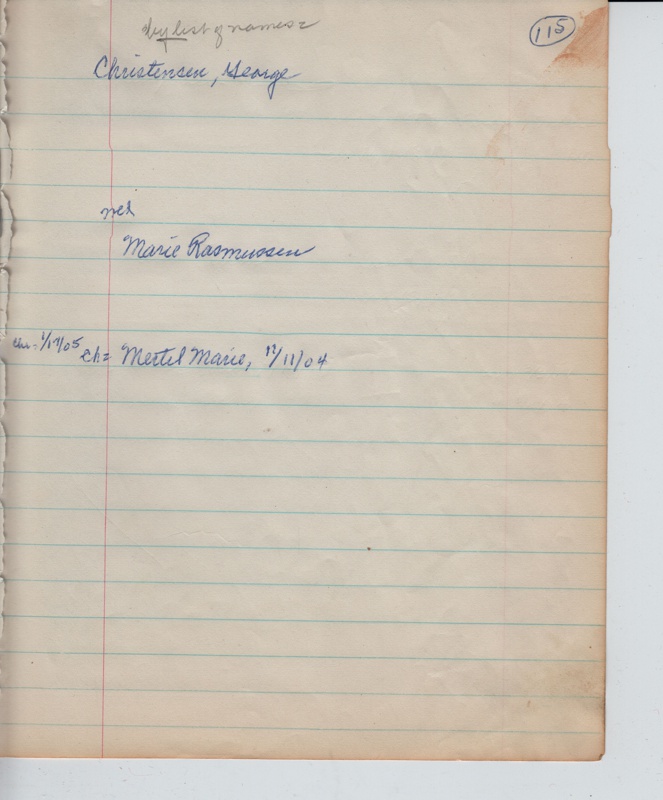 by list of names
115
Christensen, George
md
Marie Rasmussen
chr = 1/17/05 Ch = Mertel Marie, 12/11/04